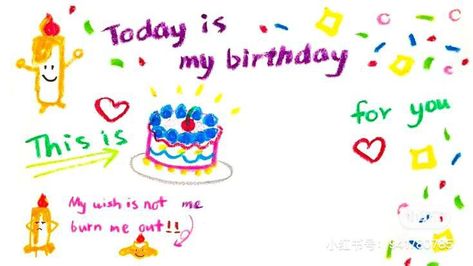 Today is
my birthday
This is
for you
My wish is not me
burn me out!!
小红书号:941780765